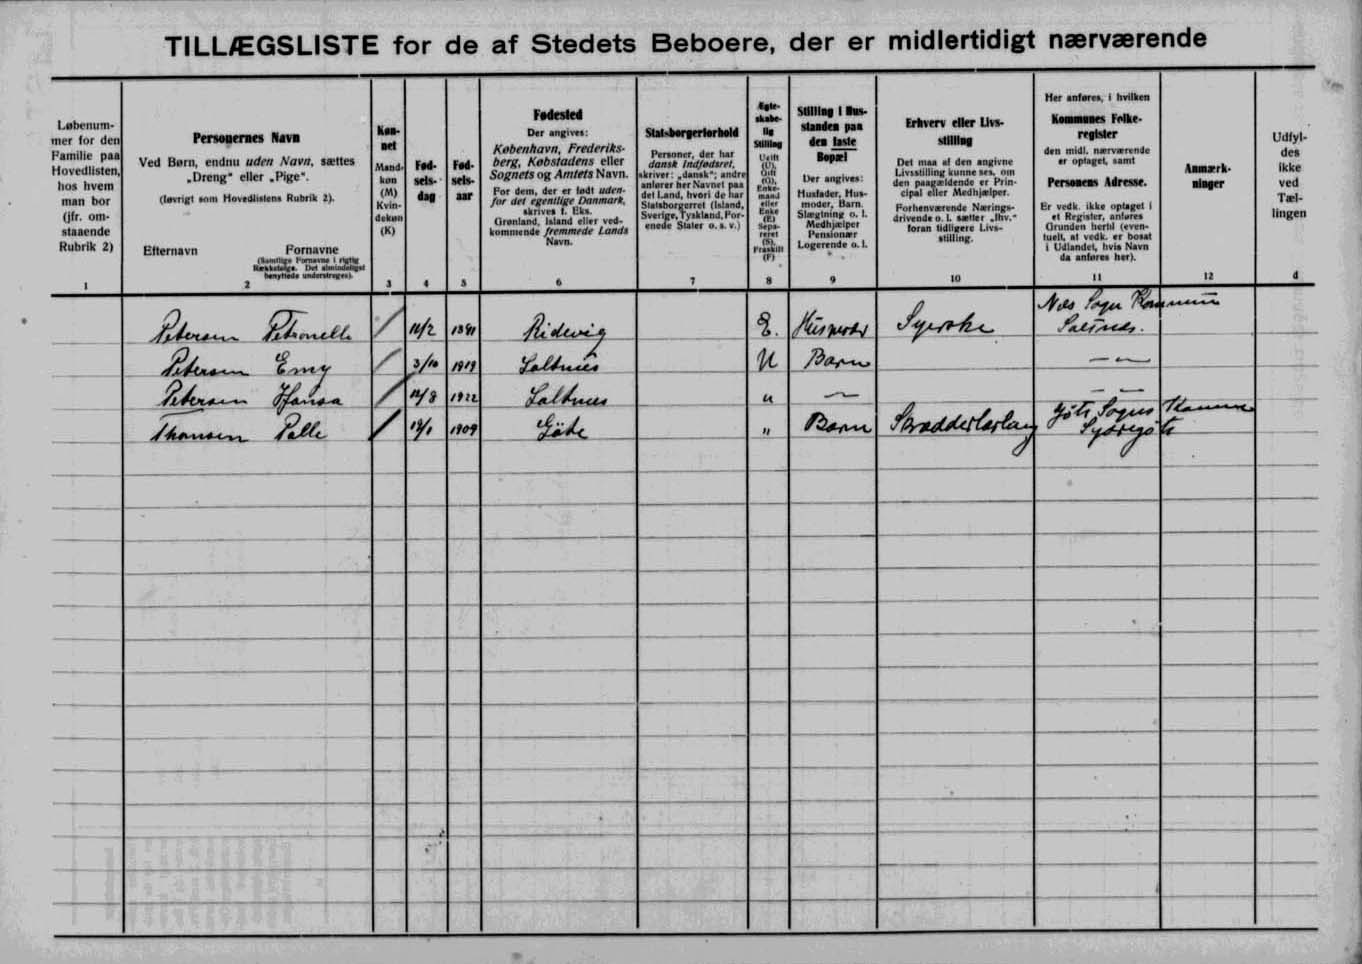 TILLÆGSLISTE for de af Stedets Beboere, der er midlertidigt nærværende
Løbenum-
mer for den
Familie paa
Hovedlisten,
hos hvem
man bor
(jfr. om-
staaende
Rubrik 2)
1
Personernes Navn
Ved Børn, endnu uden Navn, sættes
„Dreng“ eller „Pige“.
(Iøvrigt som Hovedlistens Rubrik 2).
Efternavn Fornavne
(Samtlige Fornavne i rigtig
Rækkefølge. Det almindeligst
benyttede understreges).
2
Køn-
net
Mand-
køn
(M)
Kvin-
dekøn
(K)
3
Fød-
sels-
dag
4
Fød-
sels-
aar
5
Fødested
Der angives:
København, Frederiks-
berg, Købstadens eller
Sognets og Amtets Navn.
For dem, der er født uden-
for det egentlige Danmark,
skrives f. Eks.
Grønland, Island eller ved-
kommende fremmede Lands
Navn.
6
Statsborgerforhold
Personer, der har
dansk Indfødsret,
skriver: „dansk“; andre
anfører her Navnet paa
det Land, hvori de har
Statsborgerret (Island,
Sverige, Tyskland, For-
enede Stater o. s. v.)
7
Ægte-
skabe-
lig
Stilling
Ugift
(U),
Gift
(G),
Enke-
mand
eller
Enke
(E)
Sepa-
reret
(S),
Fraskilt
(F)
8
Stilling i Hus-
standen paa
den faste
Bopæl
Der angives:
Husfader, Hus-
moder, Barn.
Slægtning o. l.
Medhjælper
Pensionær
Logerende o. l.
9
Erhverv eller Livs-
stilling
Det maa af den angivne
Livsstilling kunne ses, om
den paagældende er Prin-
cipal eller Medhjælper.
Forhenværende Nærings-
drivende o. l. sætter „fhv.“
foran tidligere Livs-
stilling.
10
Her anføres, i hvilken
Kommunes Folke-
register
den midl. nærværende
er optaget, samt
Personens Adresse.
Er vedk. ikke optaget i
et Register, anføres
Grunden hertil (even-
tuelt, at vedk. er bosat
i Udlandet, hvis Navn
da anføres her).
11
Anmærk-
ninger
12
Udfyl-
des
ikke
ved
Tæl-
lingen
d
Petersen Petronella / 1891 Ridevig E. Husmoder Syerske Næs Sogn Kommune
Saltnes.
Petersen Emy / 3/10 1919 Saltnes U Barn — „ —
Petersen Hansa / 1922 Saltnes „ — — „ —
Thomsen Palle / 1909 Göte „ Barn Skrædderlærling Göte Sogns Komune
Sydregöte